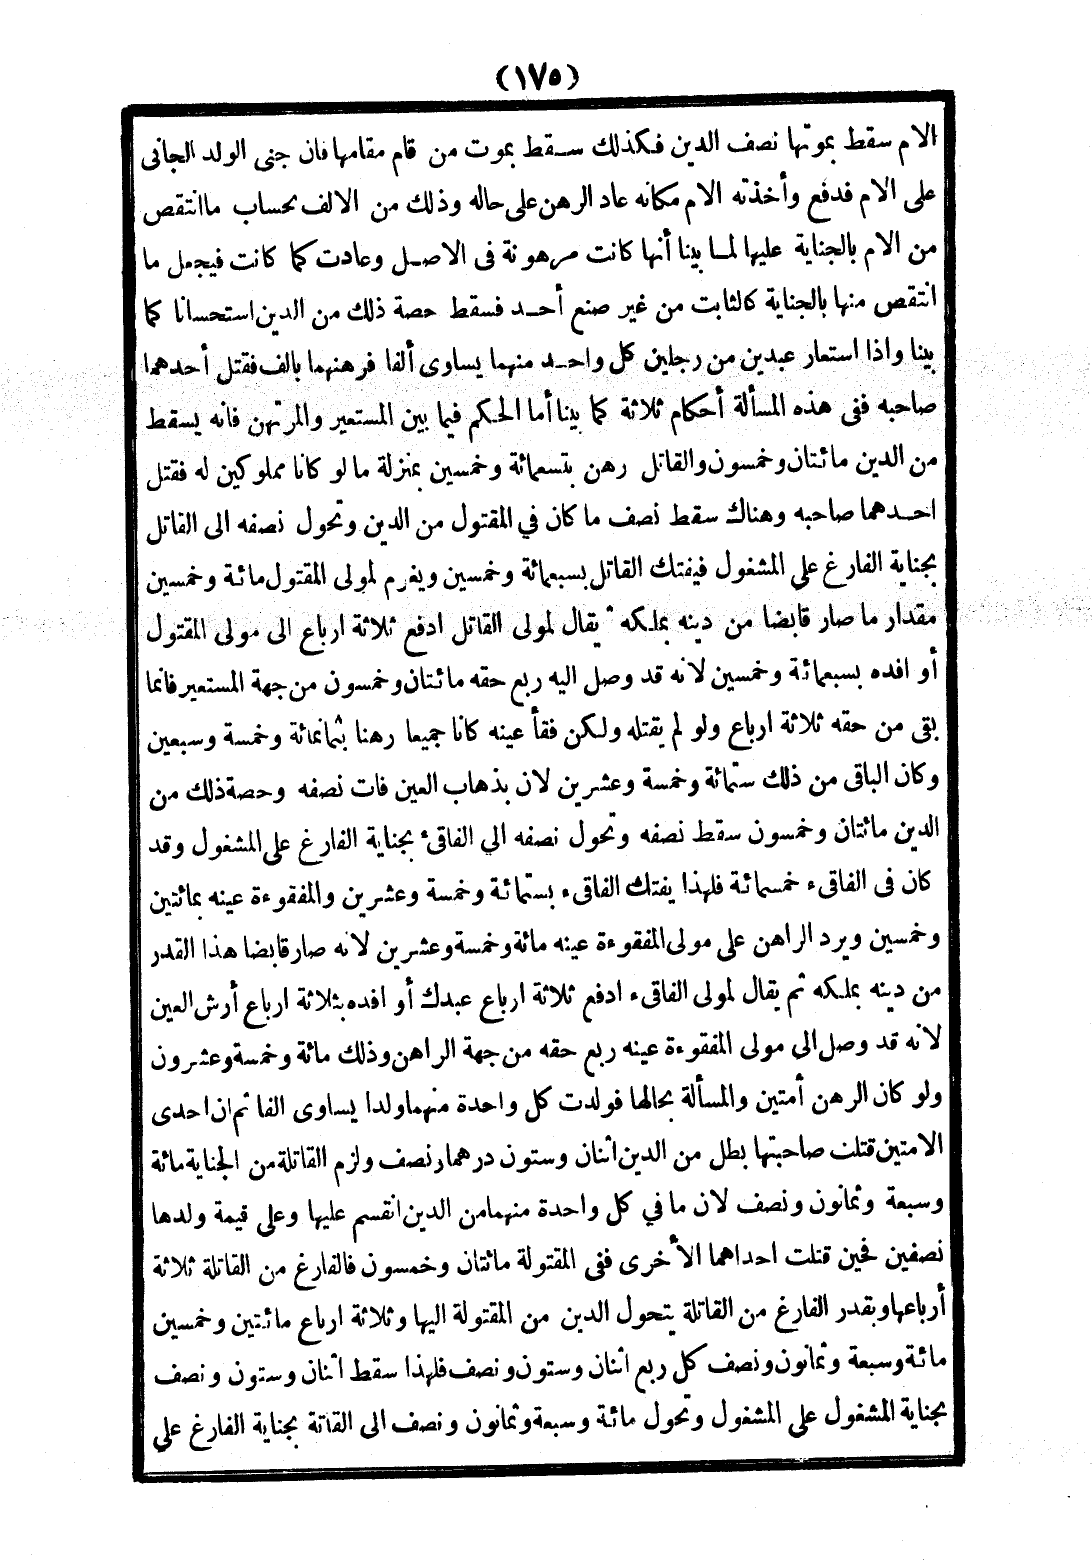 (١٧٥)
الام سقط بموتها نصف الدين فكذلك سقط بموت من قام مقامها فان جنى الولد الجانى
على الام فدفع وأخذته الام مكانه عاد الرهن على حاله وذلك من الالف بحساب ما انتقص
من الام بالجناية عليها لما بينا أنها كانت مرهونة فى الاصل وعادت كما كانت فيجعل ما
انتقص منها بالجناية كالثابت من غير صنع أحد فسقط حصة ذلك من الدين استحسانا كما
بينا واذا استعار عبدين من رجلين كل واحد منهما يساوى ألفا فرهنهما بالف فقتل أحدهما
صاحبه ففى هذه المسألة أحكام ثلاثة كما بينا أما الحكم فيما بين المستعير والمرتهن فانه يسقط
من الدين مائتان وخمسون والقاتل رهن بتسعمائة وخمسين بمنزلة ما لو كانا مملوكين له فقتل
احدهما صاحبه وهناك سقط نصف ما كان في المقتول من الدين وتحول نصفه الى القاتل
بجناية الفارغ على المشغول فيفتك القاتل بسبعمائة وخمسين ويغرم لمولى المقتول مائة وخمسين
مقدار ما صار قابضا من دينه بملكه ثم يقال لمولى القاتل ادفع ثلاثة ارباع الى مولى المقتول
أو افده بسبعمائة وخمسين لانه قد وصل اليه ربع حقه مائتان وخمسون من جهة المستعير فانما
بقى من حقه ثلاثة ارباع ولو لم يقتله ولكن فقأ عينه كانا جميعا رهنا بثمانمائة وخمسة وسبعين
وكان الباقى من ذلك ستمائة وخمسة وعشرين لان بذهاب العين فات نصفه وحصة ذلك من
الدين مائتان وخمسون سقط نصفه وتحول نصفه الي الفاقئ بجناية الفارغ على المشغول وقد
كان فى الفاقىء خمسمائة فلهذا يفتك الفاقىء بستمائة وخمسة وعشرين والمفقوءة عينه بمائتين
وخمسين ويرد الراهن على مولى المفقوءة عينه مائة وخمسة وعشرين لانه صار قابضا هذا القدر
من دينه بملكه ثم يقال لمولى الفاقىء ادفع ثلاثة ارباع عبدك أو افده بثلاثة ارباع أرش العين
لانه قد وصل الي مولى المفقوءة عينه ربع حقه من جهة الراهن وذلك مائة وخمسة وعشرون
ولو كان الرهن أمتين والمسألة بحالها فولدت كل واحدة منهما ولدا يساوى الفا ثم ان احدى
الامتين قتلت صاحبتها بطل من الدين اثنان وستون درهما ونصف ولزم القاتلة من الجناية مائة
وسبعة وثمانون ونصف لان ما في كل واحدة منهما من الدين انقسم عليها وعلى قيمة ولدها
نصفين فحين قتلت احداهما الأخرى ففى المقتولة مائتان وخمسون فالفارغ من القاتلة ثلاثة
أرباعها وبقدر الفارغ من القاتلة يتحول الدين من المقتولة اليها وثلاثة ارباع مائتين وخمسين
مائة وسبعة وثمانون ونصف كل ربع اثنان وستون ونصف فلهذا سقط اثنان وستون ونصف
بجناية المشغول على المشغول وتحول مائة وسبعة وثمانون ونصف الى القاتة بجناية الفارغ علي